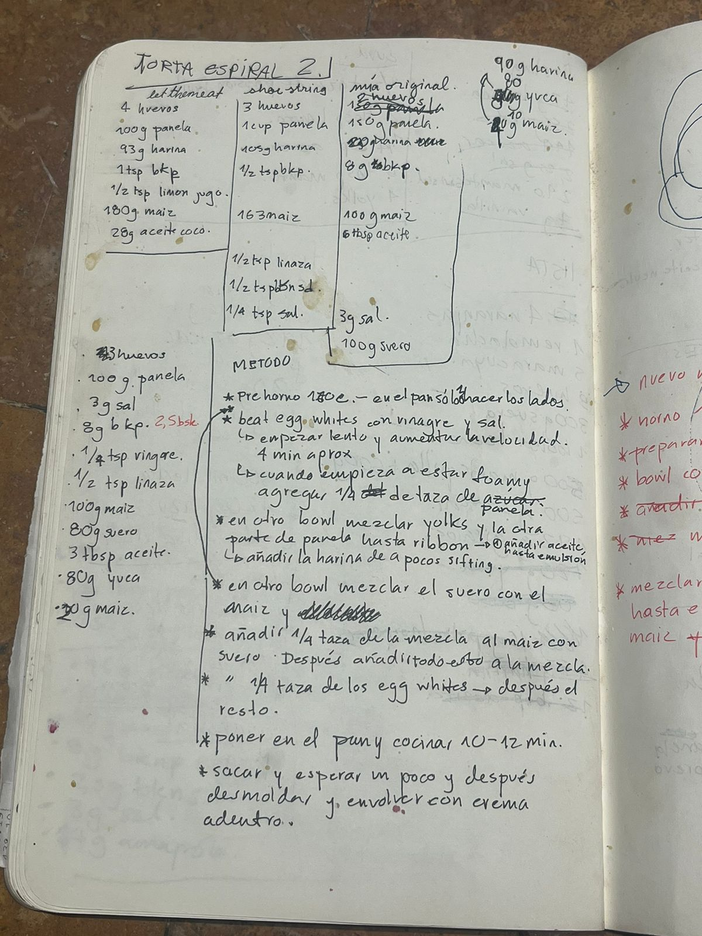 TORTA ESPIRAL 2.1
let them eat
4 huevos
100g panela
93g harina
1tsp bkp
1/2 tsp limon jugo.
180g maiz
28g aceite coco.
shoe string
3 huevos
1cup panela
105g harina
1/2 tsp bkp.
163 maiz
1/2 tsp linaza
1/2 tsp
1/4 tsp sal.
mia original.
2 huevos
150g panela.
harina
8g bkp.
100g maiz
6 tbsp aceite.
3g sal.
100g suero
90g harina
80
g yuca
10
g maiz.
3 huevos
100 g. panela
3g sal
8g bkp. 2,5
1/4 tsp vingre.
1/2 tsp linaza
100g maiz
80g suero
3 tbsp aceite.
80g yuca
20g maiz.
METODO
* Pre horno - en el pan sólo hacer los lados.
* beat egg whites con vinagre y sal.
↳ empezar lento y aumentar la velocidad.
4 min aprox
↳ cuando empieza a estar foamy
agregar 1/4 de taza de azúcar.
panela.
* en otro bowl mezclar yolks y la otra
parte de panela hasta ribbon → añadir aceite,
hasta emulsión
↳ añadir la harina de a pocos sifting.
* en otro bowl mezclar el suero con el
maiz y
* añadir 1/4 taza de la mezcla al maiz con
suero. Después añadir todo esto a la mezcla.
* " 1/4 taza de los egg whites → después el
resto.
* poner en el pan y cocinar 10-12 min.
* sacar y esperar un poco y después
desmoldar y envolver con crema
adentro.
nuevo
* horno
* preparar
* bowl
* añadir
* mez
* mezclar
hasta
maiz